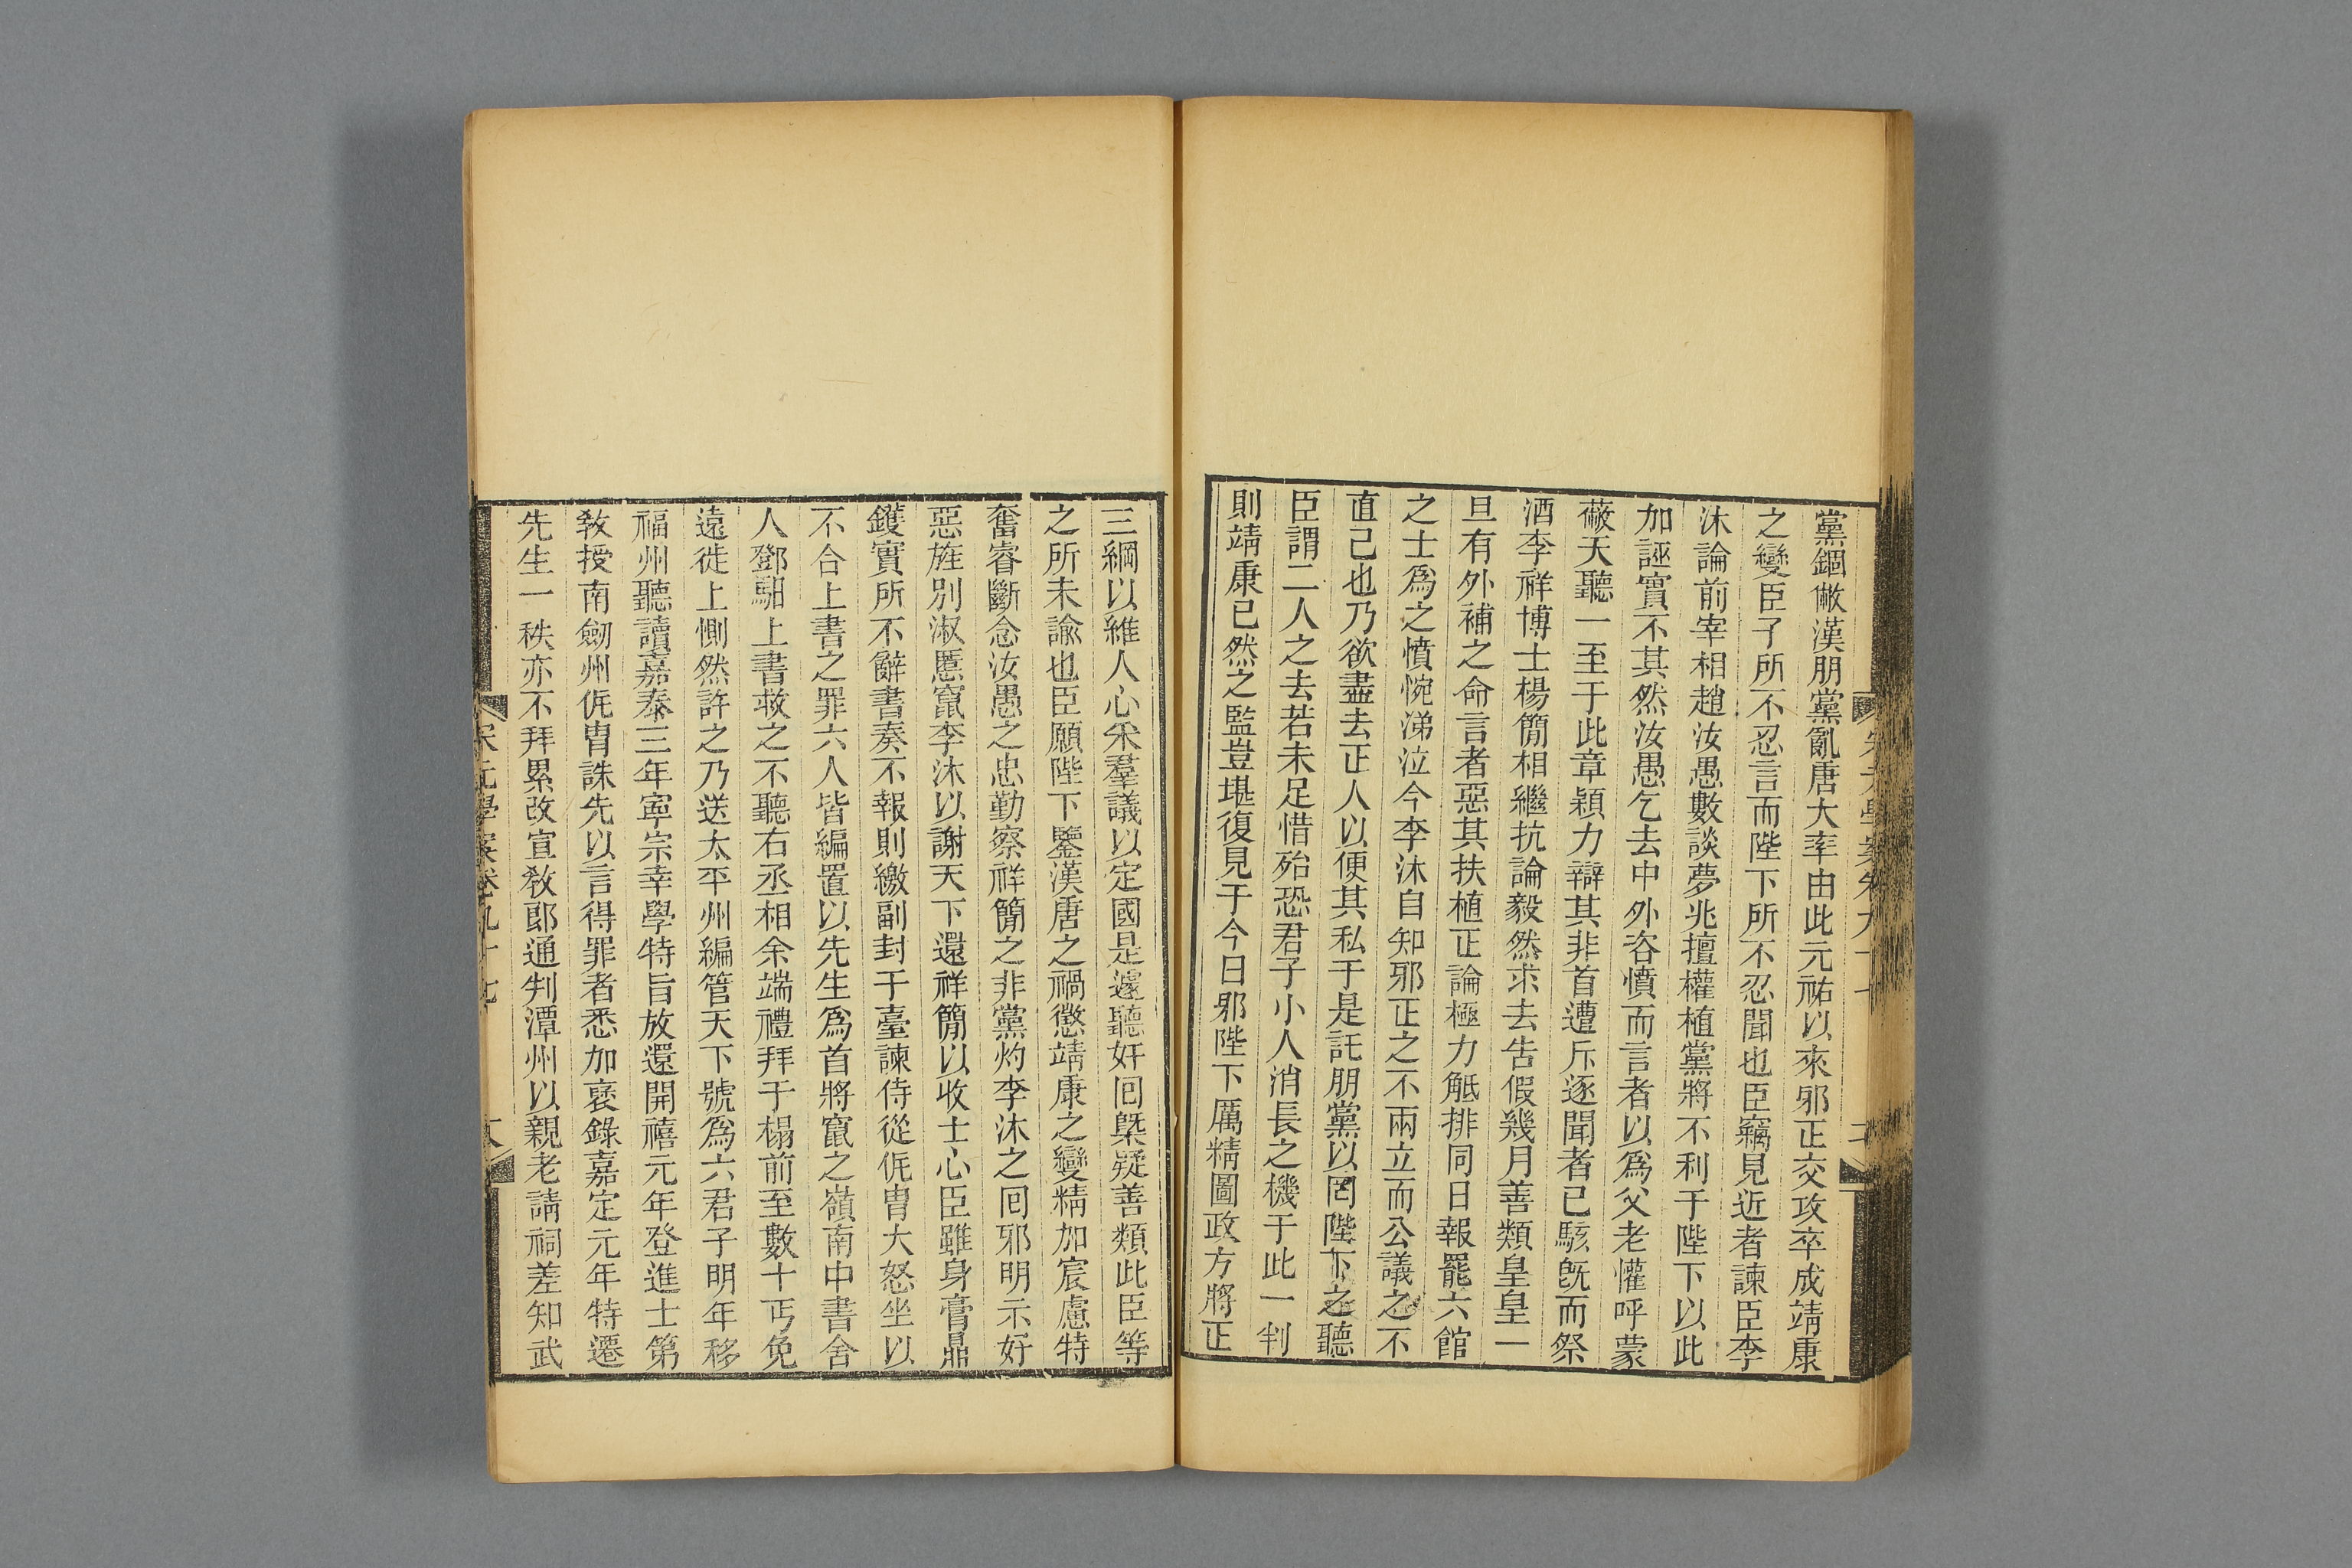 黨錮敝漢朋黨亂唐大率由此元祐以來邪正交攻卒成靖康
之變臣子所不忍言而陛下所不忍聞也臣竊見近者諫臣李
沐論前宰相趙汝愚數談夢兆擅權植黨將不利于陛下以此
加誣實不其然汝愚乞去中外咨憤而言者以爲父老懽呼蒙
蔽天聽一至于此章穎力辯其非首遭斥逐聞者已駭旣而祭
酒李祥博士楊簡相繼抗論毅然求去告假幾月善類皇皇一
旦有外補之命言者惡其扶植正論極力觝排同日報罷六館
之士爲之憤惋涕泣今李沐自知邪正之不兩立而公議之不
直己也乃欲盡去正人以便其私于是託朋黨以罔陛下之聽
臣謂二人之去若未足惜殆恐君子小人消長之機于此一判
則靖康已然之監豈堪復見于今日邪陛下厲精圖政方將正
三綱以維人心采羣議以定國是遽聽奸回槩疑善類此臣等
之所未諭也臣願陛下鑒漢唐之禍懲靖康之變精加宸慮特
奮睿斷念汝愚之忠勤察祥簡之非黨灼李沐之回邪明示好
惡旌別淑慝竄李沐以謝天下還祥簡以收士心臣雖身膏鼎
鑊實所不辭書奏不報則繳副封于臺諫侍從侂胄大怒坐以
不合上書之罪六人皆編置以先生爲首將竄之嶺南中書舍
人鄧馹上書救之不聽右丞相余端禮拜于榻前至數十丐免
遠徙上惻然許之乃送太平州編管天下號爲六君子明年移
福州聽讀嘉泰三年寧宗幸學特旨放還開禧元年登進士第
敎授南劒州侂胄誅先以言得罪者悉加襃錄嘉定元年特遷
先生一秩亦不拜累改宣敎郎通判潭州以親老請祠差知武
宋元學案卷九十七